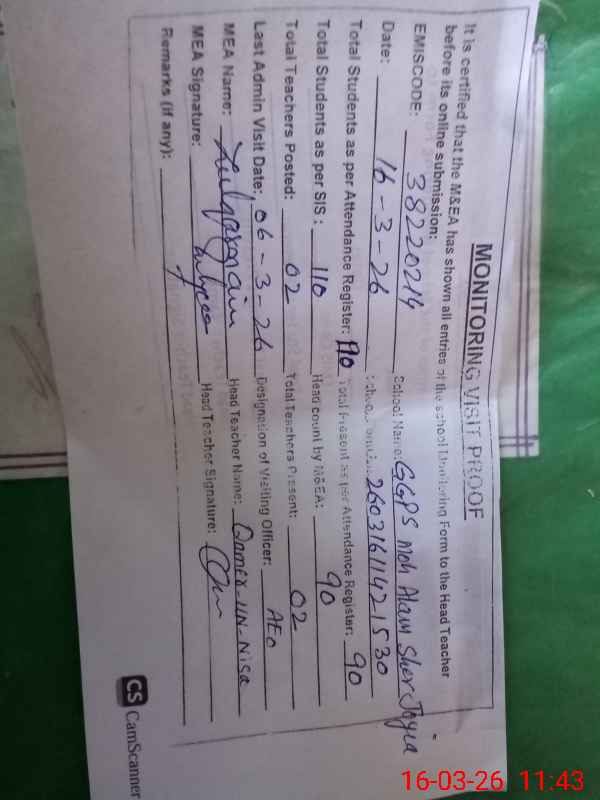 MONITORING VISIT PROOF
It is certified that the M&EA has shown all entries of the school Monitoring Form to the Head Teacher
before its online submission:
EMISCODE: 38220214 School Name: GGPS Moh Alam Sher Jogia
Date: 16-3-26 26031611421530
Total Students as per Attendance Register: 110 Total Present as per Attendance Register: 90
Total Students as per SIS: 110 Head count by M&EA: 90
Total Teachers Posted: 02 Total Teachers Present: 02
Last Admin Visit Date: 06-3-26 Designation of Visiting Officer: AEO
MEA Name: Zulqarnain Head Teacher Name: Qamer-UN-Nisa
MEA Signature: Head Teacher Signature:
Remarks (if any):
CS CamScanner
16-03-26 11:43